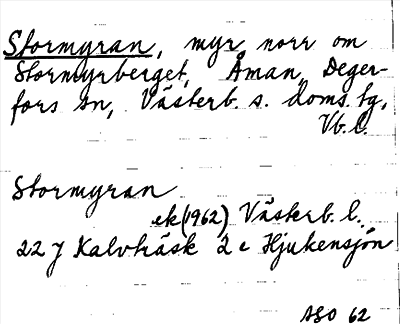 Stormyran, myr norr om
Stormyrberget, Åman, Deger-
fors sn, Västerb. s. doms. tg,
Vb. l.
Stormyran
ek (1962) Västerb. l.
22 J Kalvträsk 2 c Hjukensjön
ASO 62